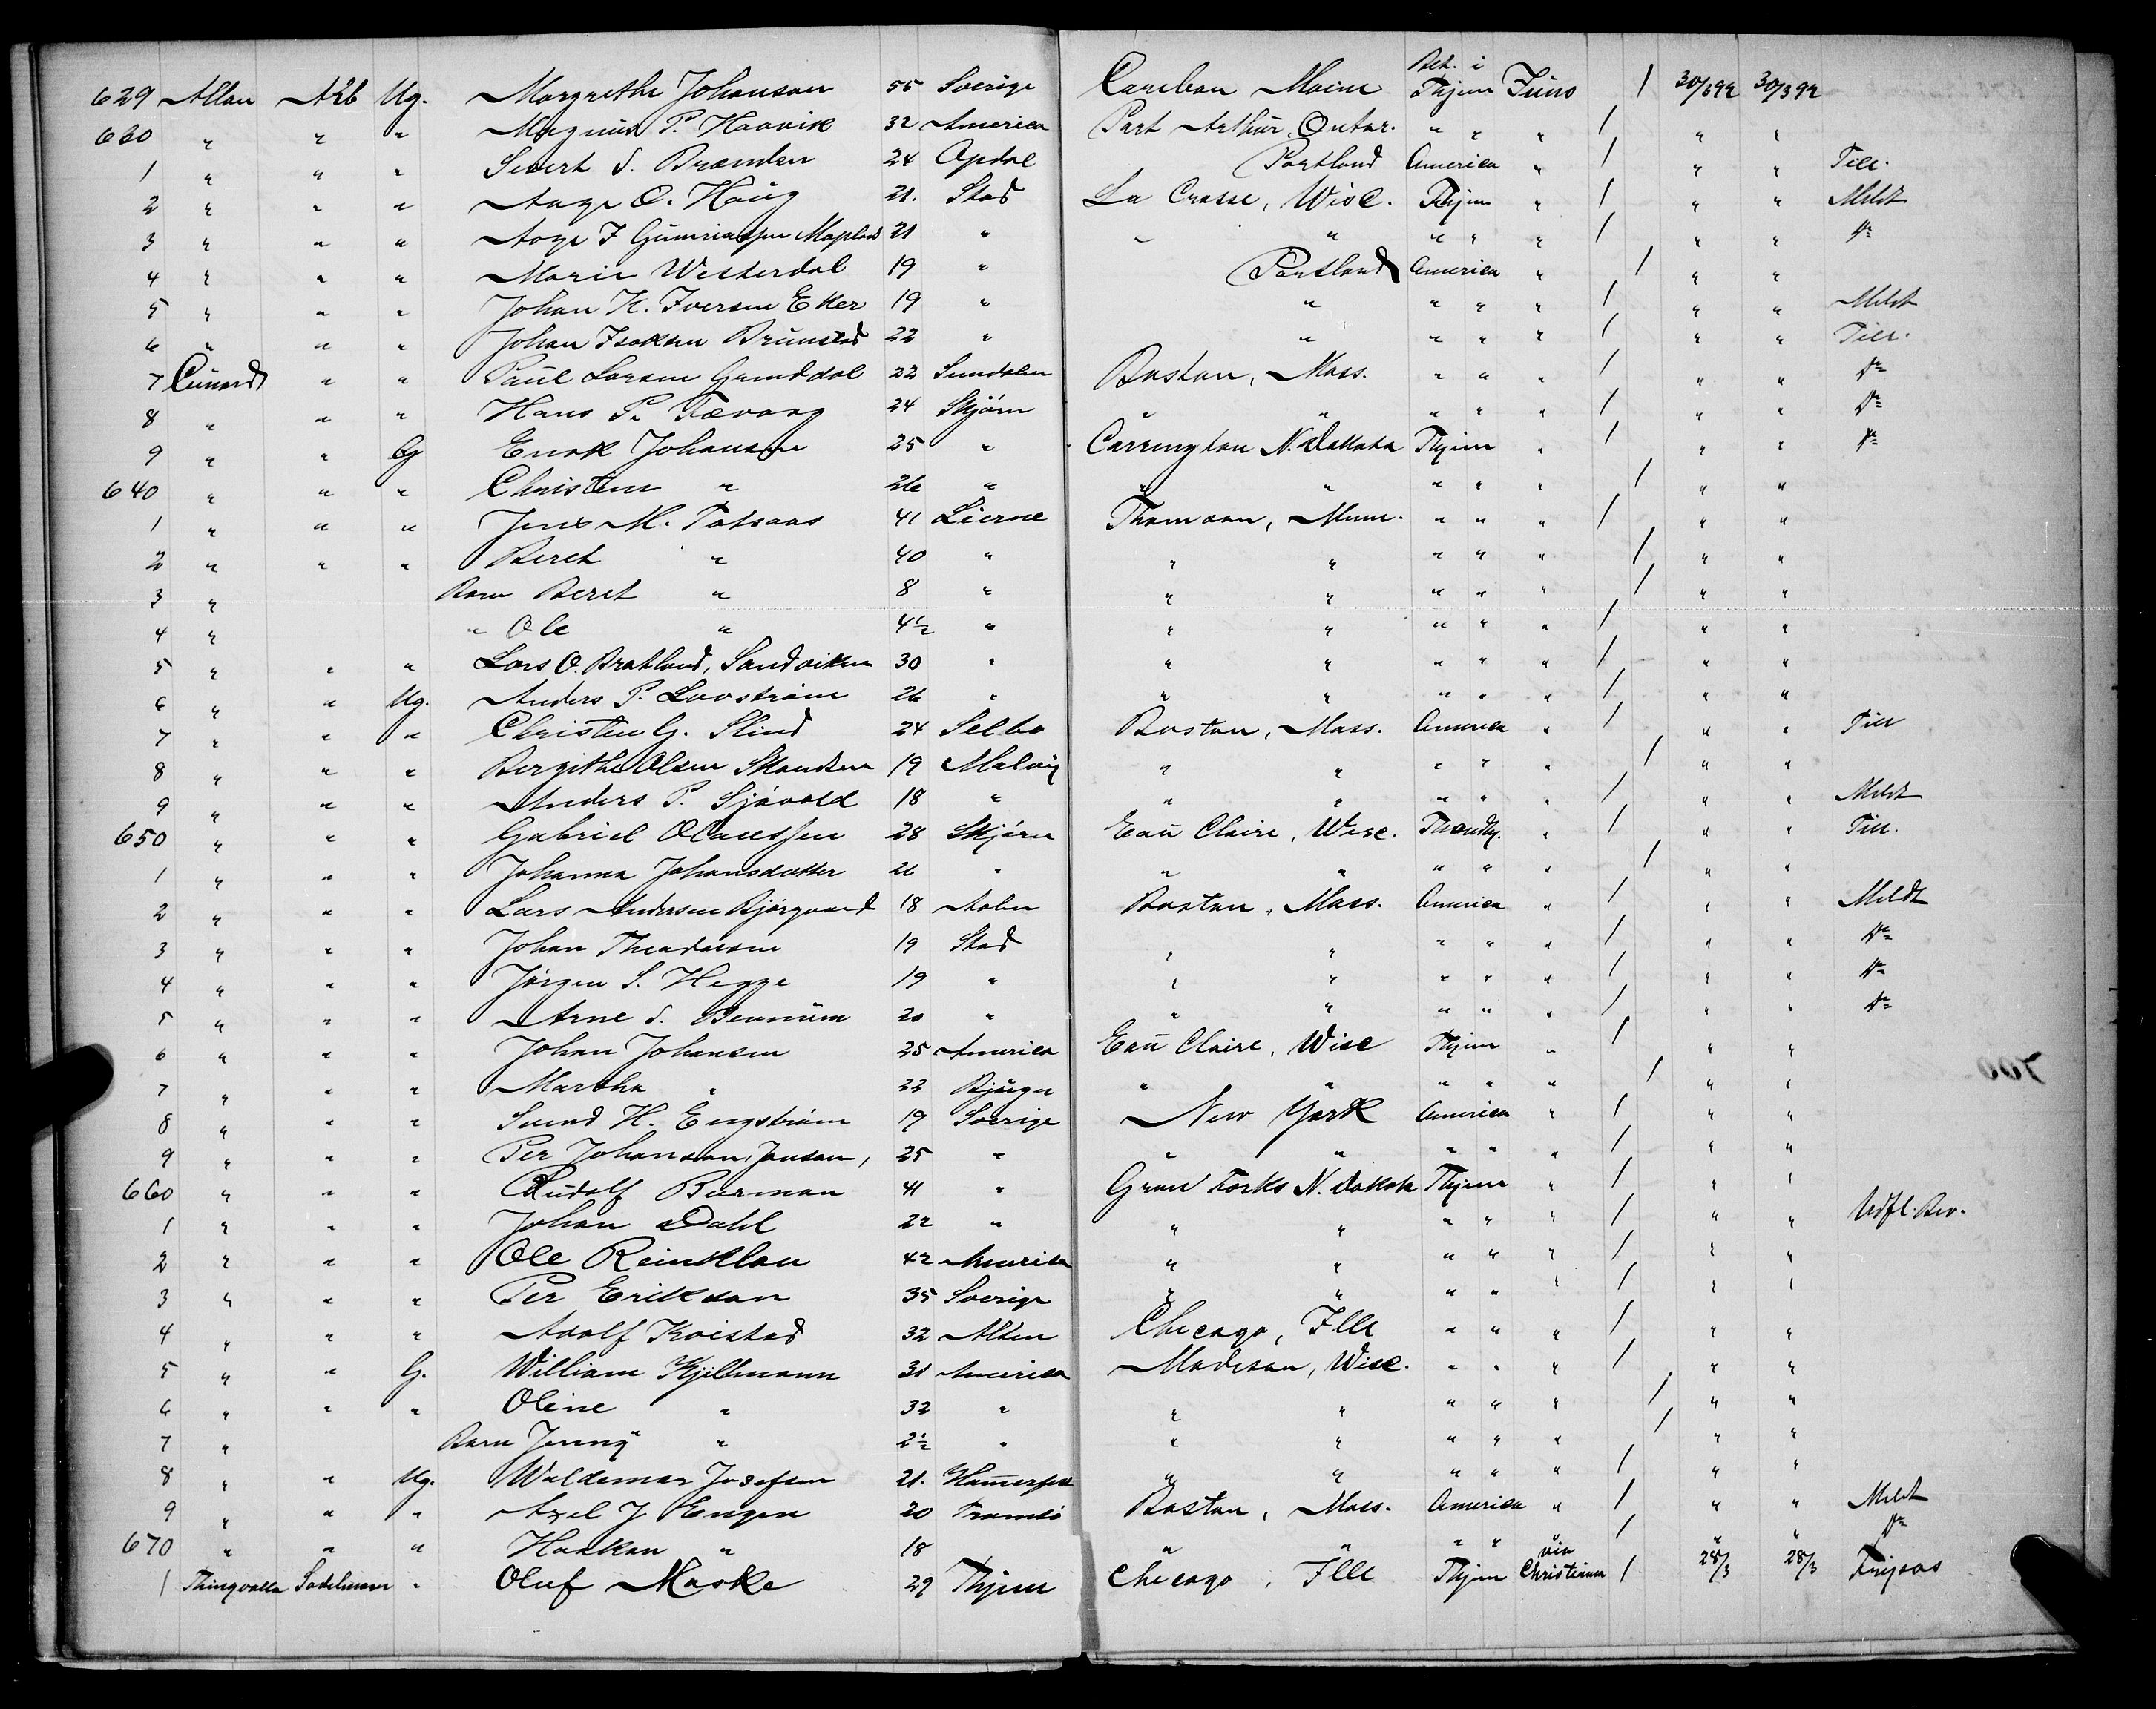 Bet. i
629 Allan Arb Ug. Margrethe Johanson 55 Sverige Careban Maine Thjem Juno 1 30/3 92 30/3 92
630 " " " Magnus P. Haavik 32 America Port Arthur, Ontar. " " " 1 " "
1 " " " Sivert S. Brænden 24 Opdal Portland America " 1 " " Till.
2 " " " Aage O. Haug 21. Stad La Crosse, Wisc. Thjem " 1 " " Meldt
3 " " " Aage F 21 " " " " " " 1 " " do
4 " " " Marie Westerdal 19 " Portland America " 1 " "
5 " " " Johan K. Iversen Eker 19 " " " " " 1 " " Meldt
6 " " " Johan Isaksen Brunstad 22 " " " " " 1 " " Till.
7 Cunard " " Paul Larsen Grønddal 22 Sundalen Boston, Mass. " " " 1 " " do
8 " " " Hans P. Tævang 24 Skjørn " " " " " 1 " " do
9 " " Gg Enok Johansen 25 " Carrington N. Dakota Thjem " 1 " " do
640 " " " Christine " 26 " " " " " " 1 " "
1 " " " Jens M. Totsaas 41 Lierne Thomson, Minn. " " " 1 " "
2 " " " Beret " 40 " " " " " " 1 " "
3 " Barn Beret " 8 " " " " " " 1 " "
4 " " Ole " 4½ " " " " " " 1 " "
5 " " " Lars O. Bratland, Sandviken 30 " " " " " " 1 " "
6 " " Ug. Anders P. Lovstrøm 26 " " " " " " 1 " "
7 " " " Christen G. Slind 24 Selbo Boston, Mass. America " 1 " " Till
8 " " " Bergithe Olsen Skandsen 19 Malvig " " " " " 1 " "
9 " " " Anders P. Sjøvold 18 " " " " " " 1 " " Meldt
650 " " " Gabriel Olaussen 28 Skjørn Eau Claire, Wisc. Thjem " 1 " " Till.
1 " " " Johanna Johansdatter 26 " " " " " " 1 " "
2 " " " Lars Andersen Bjørgaard 18 Aalen Boston, Mass. America " 1 " " Meldt
3 " " " Johan Theodorsen 19 Stad " " " " " 1 " " do
4 " " " Jørgen S. Hegge 19 " " " " " " 1 " " do
5 " " " Arne S. Bennum 20 " " " " " " 1 " " do
6 " " " Johan Johansen 25 America Eau Claire, Wisc Thjem " 1 " "
7 " " " Martha " 22 Bjørgen " " " " " 1 " "
8 " " " Svend H. Engstrøm 19 Sverige New York America " 1 " "
9 " " " Per Johanson, Jonson, 25 " " " " " " 1 " "
660 " " " Rudolf Burman 41 " Gran Forks N. Dakota Thjem " 1 " "
1 " " " Johan Dahl 22 " " " " " " 1 " " Udfl. Bev.
2 " " " Ole Reinklau 42 America " " " " " 1 " "
3 " " " Per Erikson 35 Sverige " " " " " 1 " "
4 " " " Adolf Kvistad 32 Alten Chicago, Ills " " " 1 " "
5 " " G. William Kjillmann 31 America Madison, Wisc. " " " 1 " "
6 " " " Oline " 32 " " " " " " 1 " "
7 " Barn Jenny " 2½ " " " " " " 1 " "
8 " " Ug. Waldemar Josefsen 21. Hamerfest " " " " " 1 " "
9 " " " Axel J Engen 20 Tromsø Boston, Mass. America " 1 " " Meldt
670 " " " Haakon " 18 " " " " 1 " " do
1 Thingvalla Sadelmager " Oluf Moske 29 Thjem Chicago, Ills Thjem via Christiania 1 28/3 28/3 Fripas
700